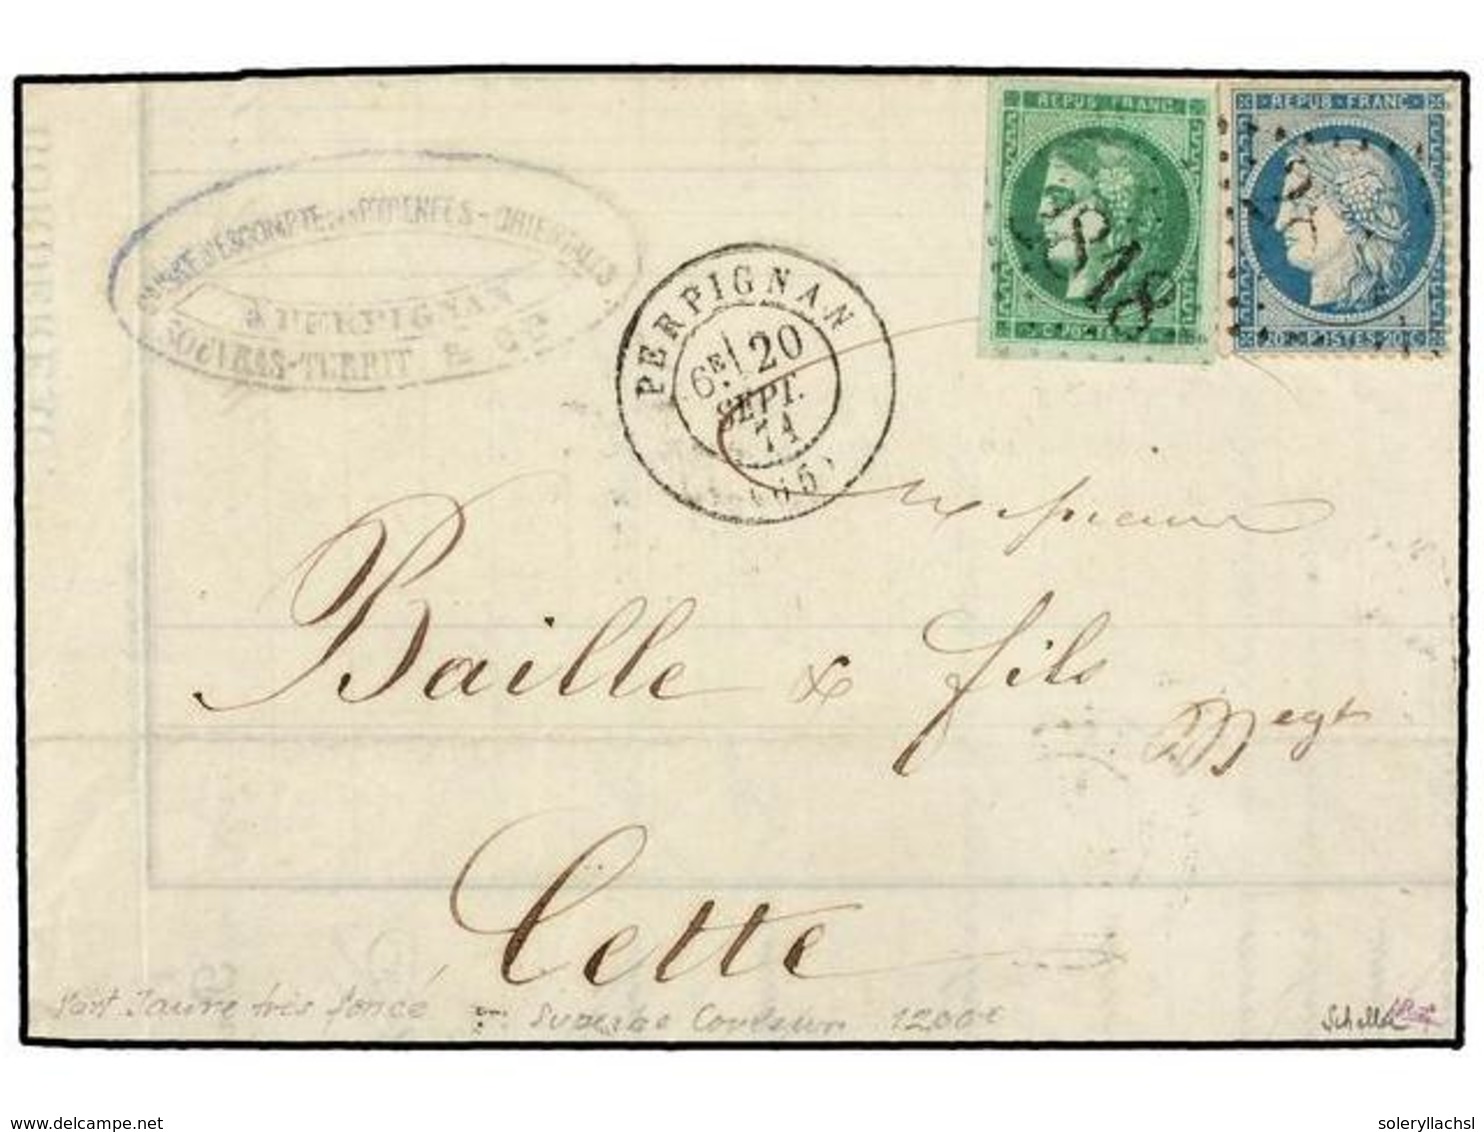 REPUB FRANC
2818
REPUB · FRANC
28
20 c POSTES 20 c
COMPTOIR D'ESCOMPTE DES PYRENEES-ORIENTALES
A PERPIGNAN
SOUVRAS-TERRIT & Cie
PERPIGNAN
6E 20
SEPT.
71
(65)
Messieurs
Baille & fils
Negt
Cette
Vert Jaune très foncé
Superbe Couleur 1200€
Scheller
www.delcampe.net
soleryllachsl